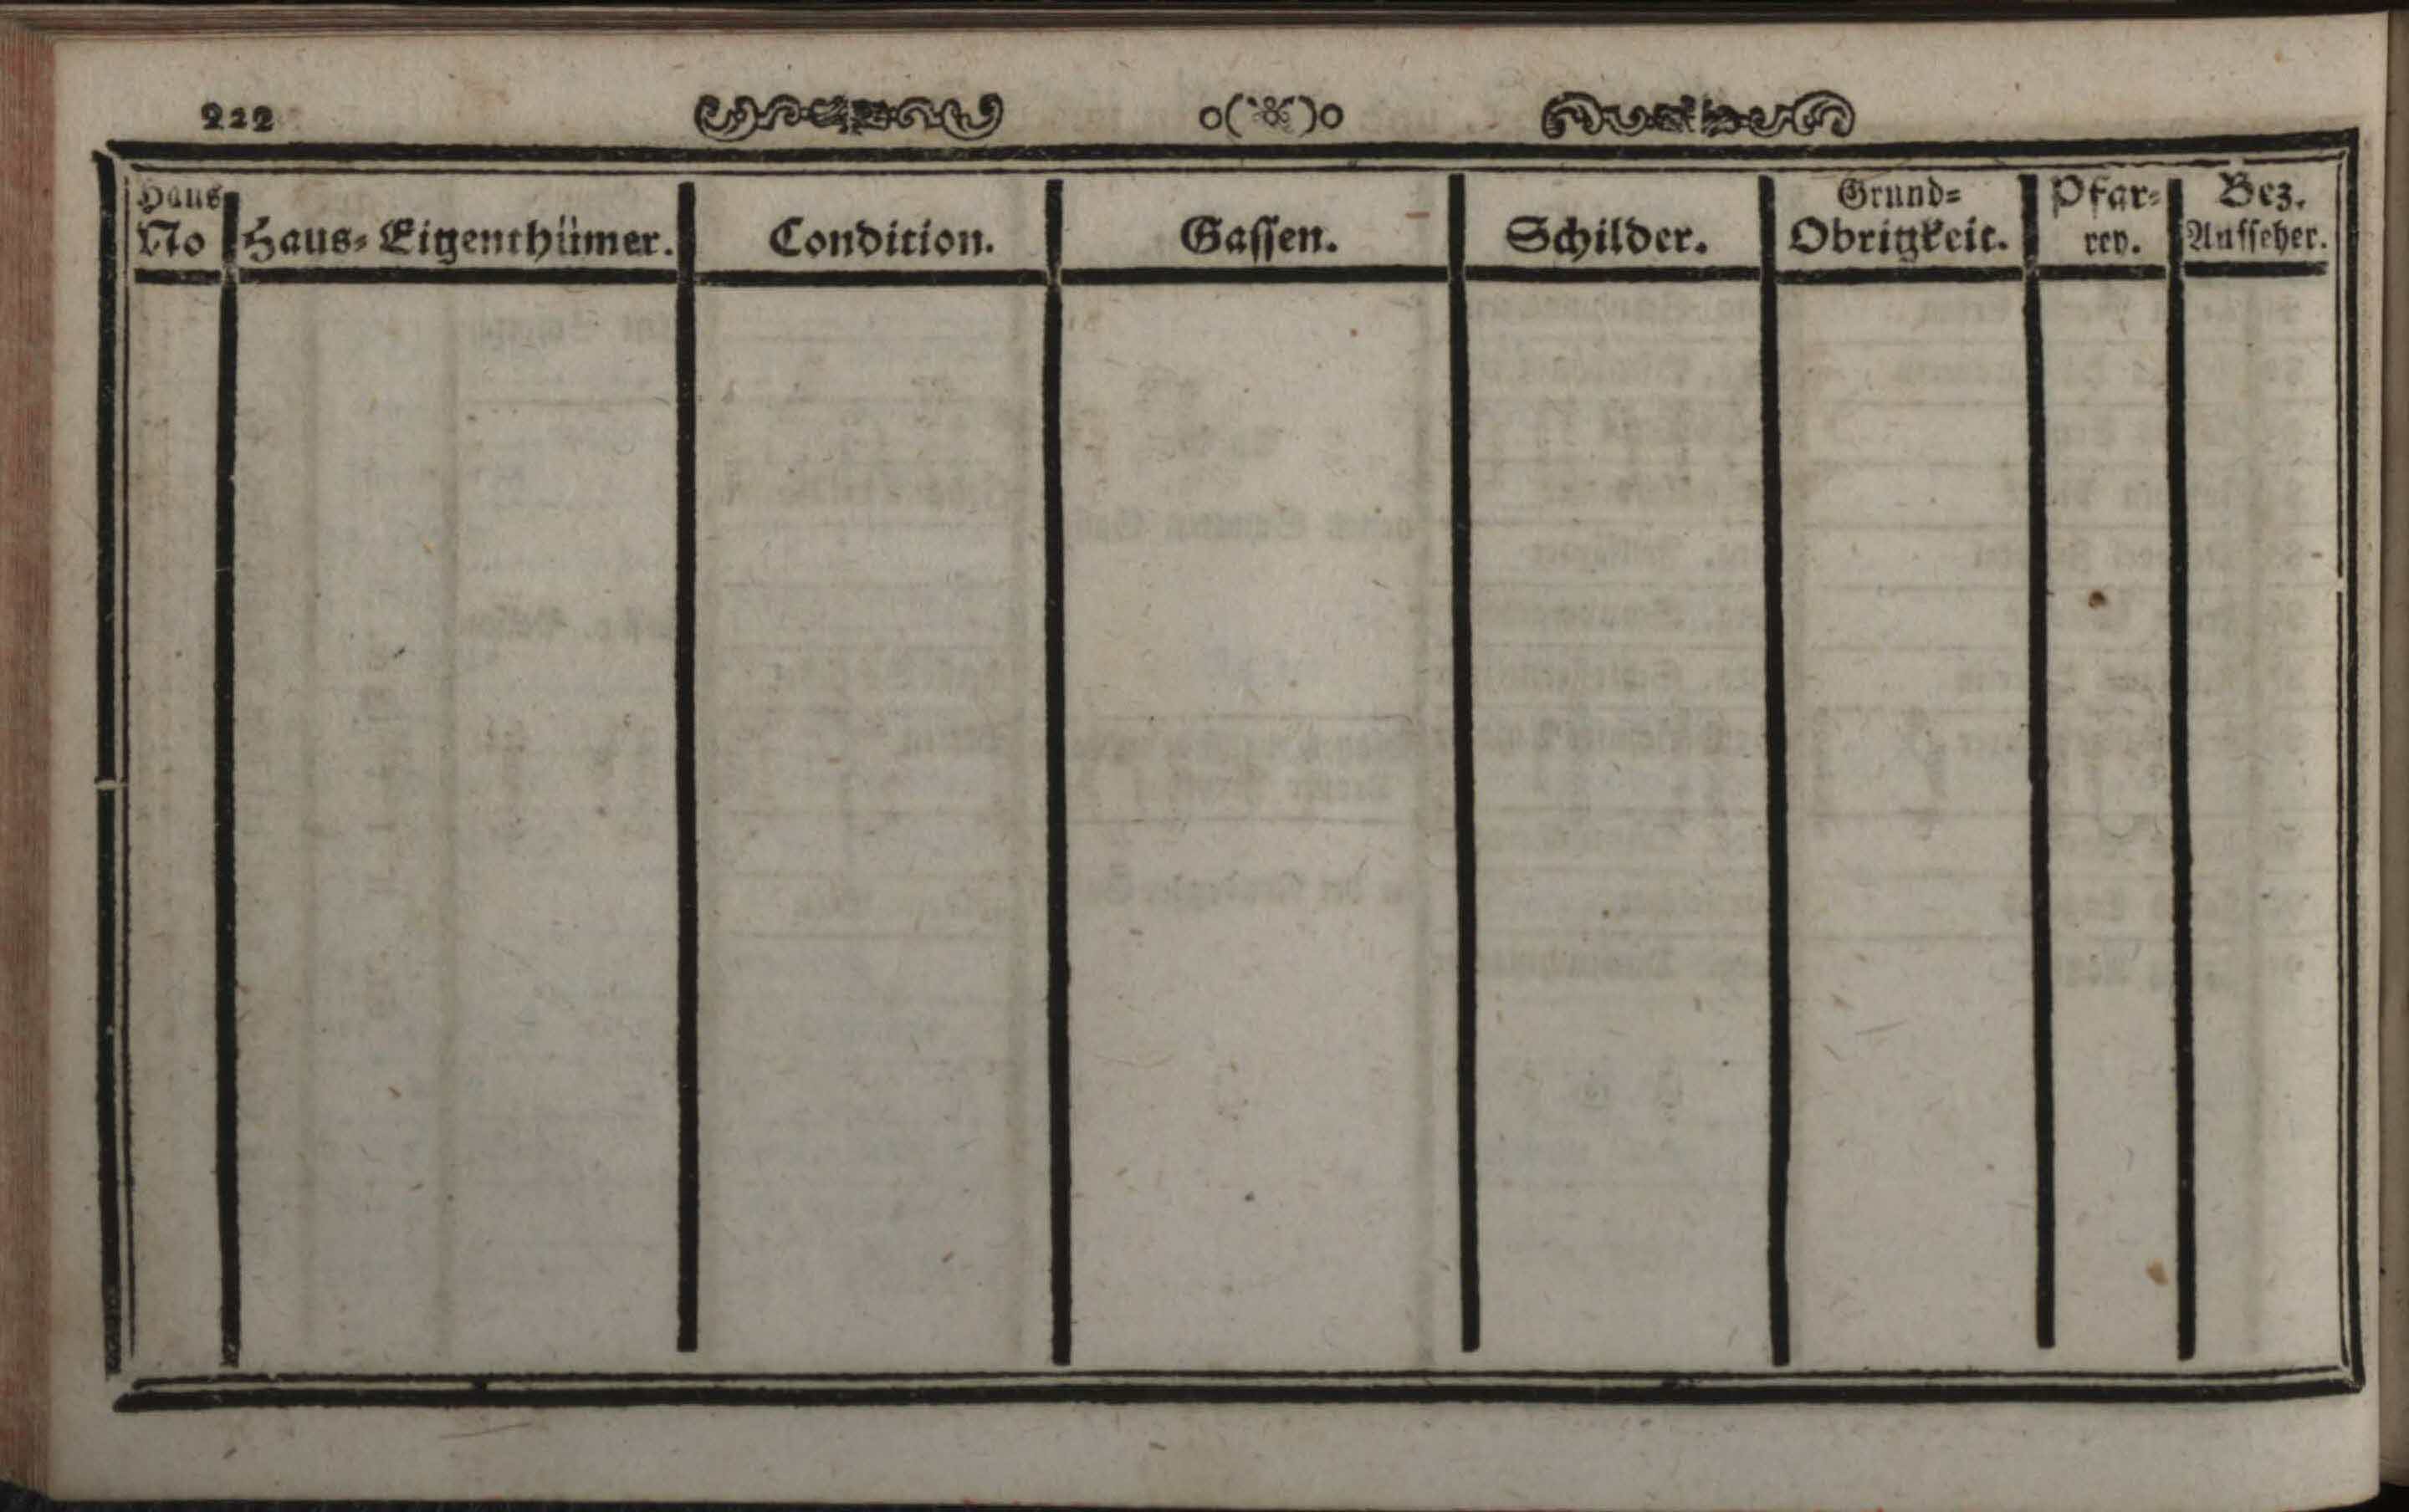 222 o( * )o
Haus No | Haus-Eigenthümer. | Condition. | Gassen. | Schilder. | Grund-Obrigkeit. | Pfar-rey. | Bez. Aufseher.